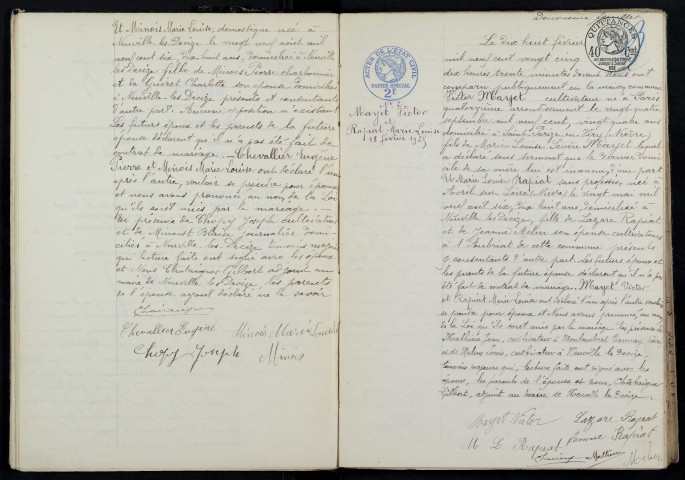 Et Minois Marie Louise, domestique née à
Neuville les Decize le vingt neuf août mil
neuf cent six, dix huit ans, domiciliée à Neuville
les Decize fille de Minois Pierre charbonnier
et de Guéret Charlotte son épouse domiciliés
à Neuville-les-Decize présents et consentants
d'autre part. Aucune opposition n'existant
Les futurs époux et les parents de la future
épouse déclarent qu'il n'a pas été fait de
contrat de mariage. Chevallier Eugène
Pierre et Minois Marie Louise ont déclaré l'un
après l'autre, vouloir se prendre pour époux
et nous avons prononcé au nom de la Loi
qu'ils sont unis par le mariage. En
présence de Chopy Joseph cultivateur
et de Minois Blaise journalier domi-
ciliés à Neuville-les-Decize témoins majeurs
qui lecture faite ont signé avec les époux
et Nous Gilbert adjoint au
maire de Neuville les Decize. Les parents
de l'épouse ayant déclaré ne le savoir
Chevallier Eugène Minois Marie Louise
Chopy Joseph Minois
ACTES DE L'ETAT CIVIL
PAPIER SPECIAL
2F
Marjet Victor
et
Rapiat Marie Louise
18 février 1925
QUITTANCES
40 Cent
Le dix huit février
mil neuf cent vingt cinq
dix heures trente minutes devant nous ont
comparu publiquement en la maison commune
Victor Marjet cultivateur né à Paris
quatorzième arrondissement le vingt quatre
septembre mil neuf cent, vingt quatre ans
domicilié à Saint Parize en Viry (Nièvre)
fils de Marie Louise Marjet lequel
a déclaré sous serment que le dernier domi-
cile de sa mère lui est inconnu, d'une part
Et Marie Louise Rapiat sans profession, née à
Avril sur Loire (Nièvre) le vingt mai mil
neuf cent six, dix huit ans domiciliée à
Neuville les Decize, fille de Lazare Rapiat
et de Jeanne Melin son épouse cultivateurs
à de cette commune présents
et consentants d'autre part. Les futurs époux et
les parents de la future épouse déclarent qu'il n'a pas
été fait de contrat de mariage. Marjet Victor
et Rapiat Marie Louise ont déclaré l'un après l'autre vouloir
se prendre pour époux et Nous avons prononcé au nom
de la Loi qu'ils sont unis par le mariage. En présence de
Mathieu Jean, cultivateur à
et de Melin Louis, cultivateur à Neuville les Decize,
témoins majeurs qui, lecture faite ont signé avec les
époux, les parents de l'épouse et Nous,
Gilbert, adjoint au maire de Neuville les Decize.
Marjet Victor Lazare Rapiat
M L Rapiat femme Rapiat
Mathieu Melin